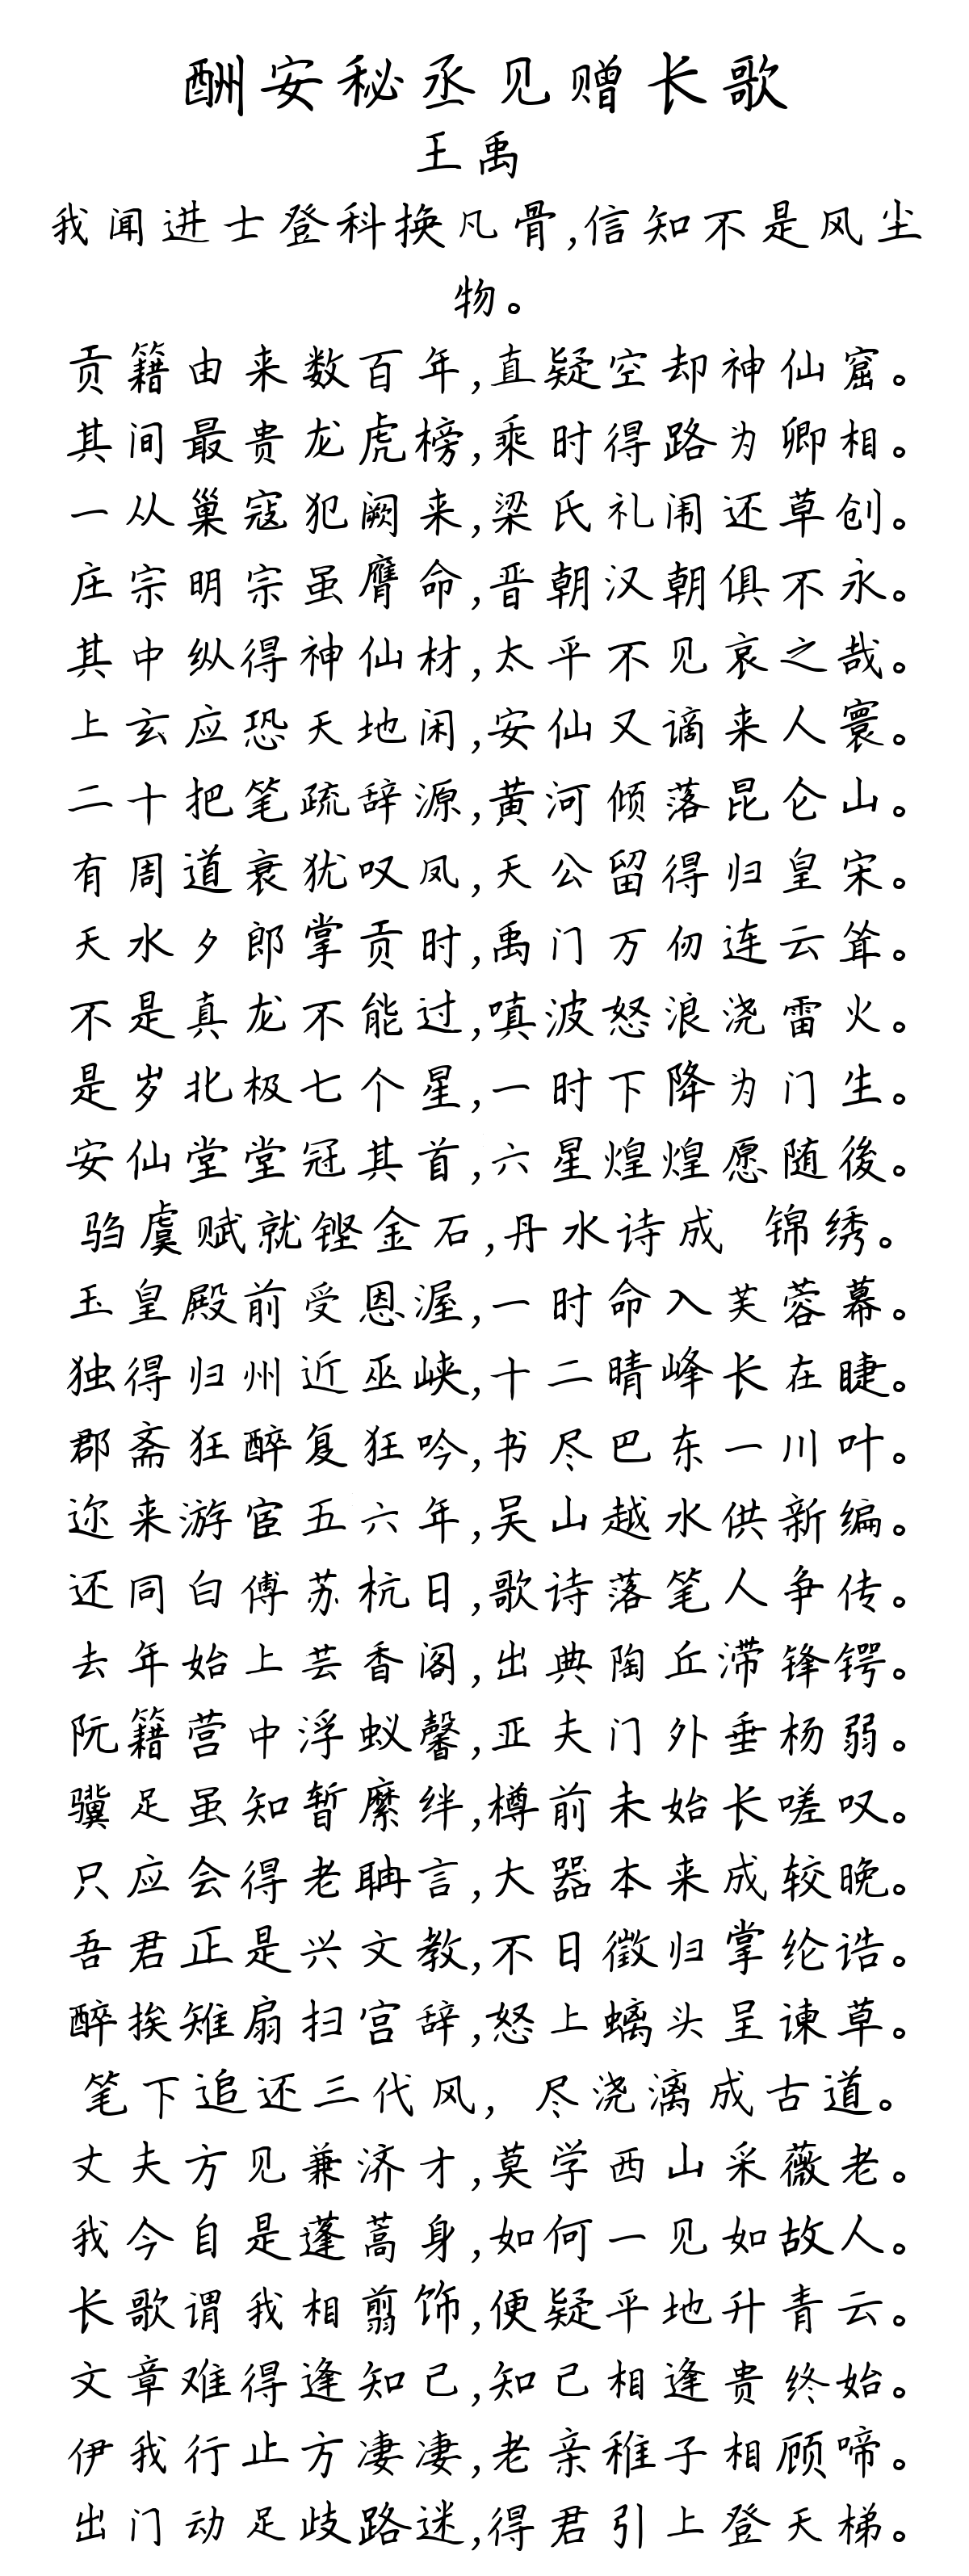 酬安秘丞见赠长歌
王禹
我闻进士登科换凡骨,信知不是风尘
物。
贡籍由来数百年,直疑空却神仙窟。
其间最贵龙虎榜,乘时得路为卿相。
一从巢寇犯阙来,梁氏礼闱还草创。
庄宗明宗虽膺命,晋朝汉朝俱不永。
其中纵得神仙材,太平不见哀之哉。
上玄应恐天地闲,安仙又谪来人寰。
二十把笔疏辞源,黄河倾落昆仑山。
有周道衰犹叹凤,天公留得归皇宋。
天水夕郎掌贡时,禹门万仞连云耸。
不是真龙不能过,嗔波怒浪浇雷火。
是岁北极七个星,一时下降为门生。
安仙堂堂冠其首,六星煌煌愿随後。
驺虞赋就铿金石,丹水诗成 锦绣。
玉皇殿前受恩渥,一时命入芙蓉幕。
独得归州近巫峡,十二晴峰长在睫。
郡斋狂醉复狂吟,书尽巴东一川叶。
迩来游宦五六年,吴山越水供新编。
还同白傅苏杭日,歌诗落笔人争传。
去年始上芸香阁,出典陶丘滞锋锷。
阮籍营中浮蚁馨,亚夫门外垂杨弱。
骥足虽知暂縻绊,樽前未始长嗟叹。
只应会得老聃言,大器本来成较晚。
吾君正是兴文教,不日徵归掌纶诰。
醉挨雉扇扫宫辞,怒上螭头呈谏草。
笔下追还三代风, 尽浇漓成古道。
丈夫方见兼济才,莫学西山采薇老。
我今自是蓬蒿身,如何一见如故人。
长歌谓我相翦饰,便疑平地升青云。
文章难得逢知己,知己相逢贵终始。
伊我行止方凄凄,老亲稚子相顾啼。
出门动足歧路迷,得君引上登天梯。